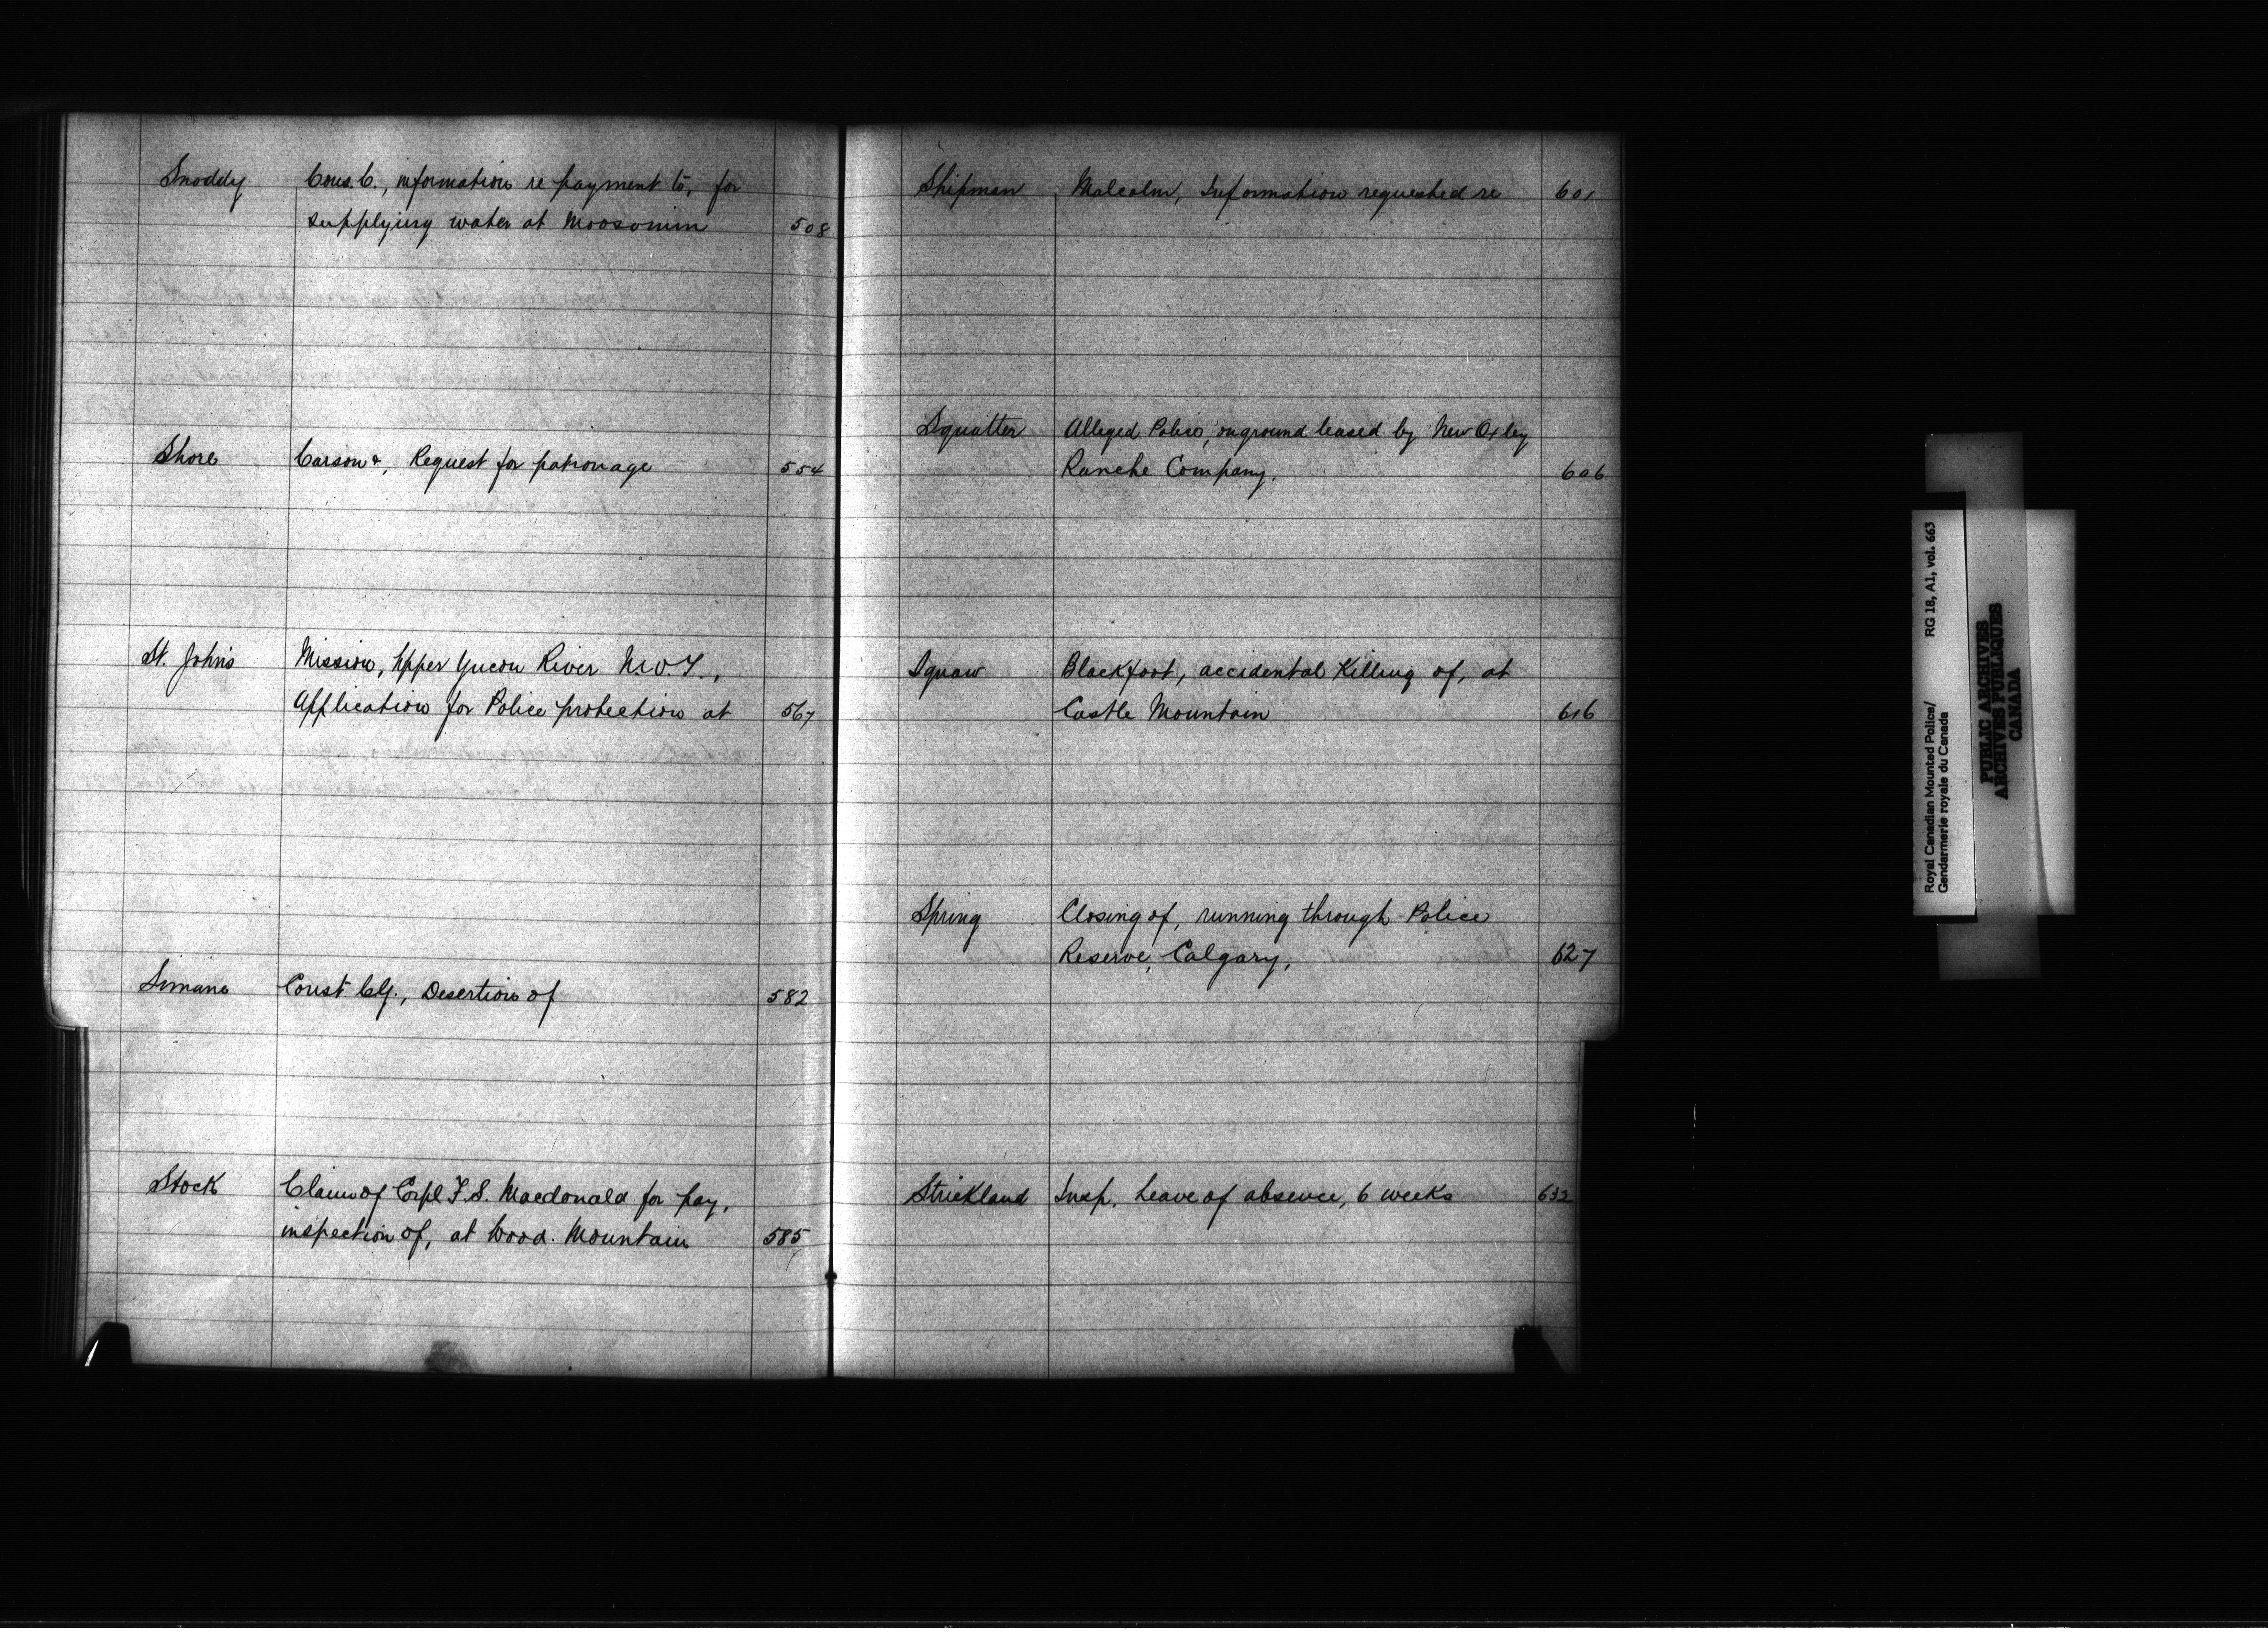 Snoddy Cons. C., information re payment to, for
supplying water at Moosomin 508
Shore Carson &, Request for patronage 554
St. John's Mission, Upper Yucon River N.W.T.,
Application for Police protection at 567
Simans Const , Desertion of 582
Stock Claim of Corpl F.S. Macdonald for pay,
inspection of, at Wood Mountain 585
Shipman Malcolm, Information requested re 601
Squatter Alleged Police, on ground leased by New Oxley
Ranche Company, 606
Squaw Blackfoot, accidental Killing of, at
Castle Mountain 616
Spring Closing of, running through Police
Reserve, Calgary, 627
Strickland Insp. Leave of absence, 6 weeks 632
Royal Canadian Mounted Police/ RG 18, A1, vol. 663
Gendarmerie royale du Canada
PUBLIC ARCHIVES
ARCHIVES PUBLIQUES
CANADA